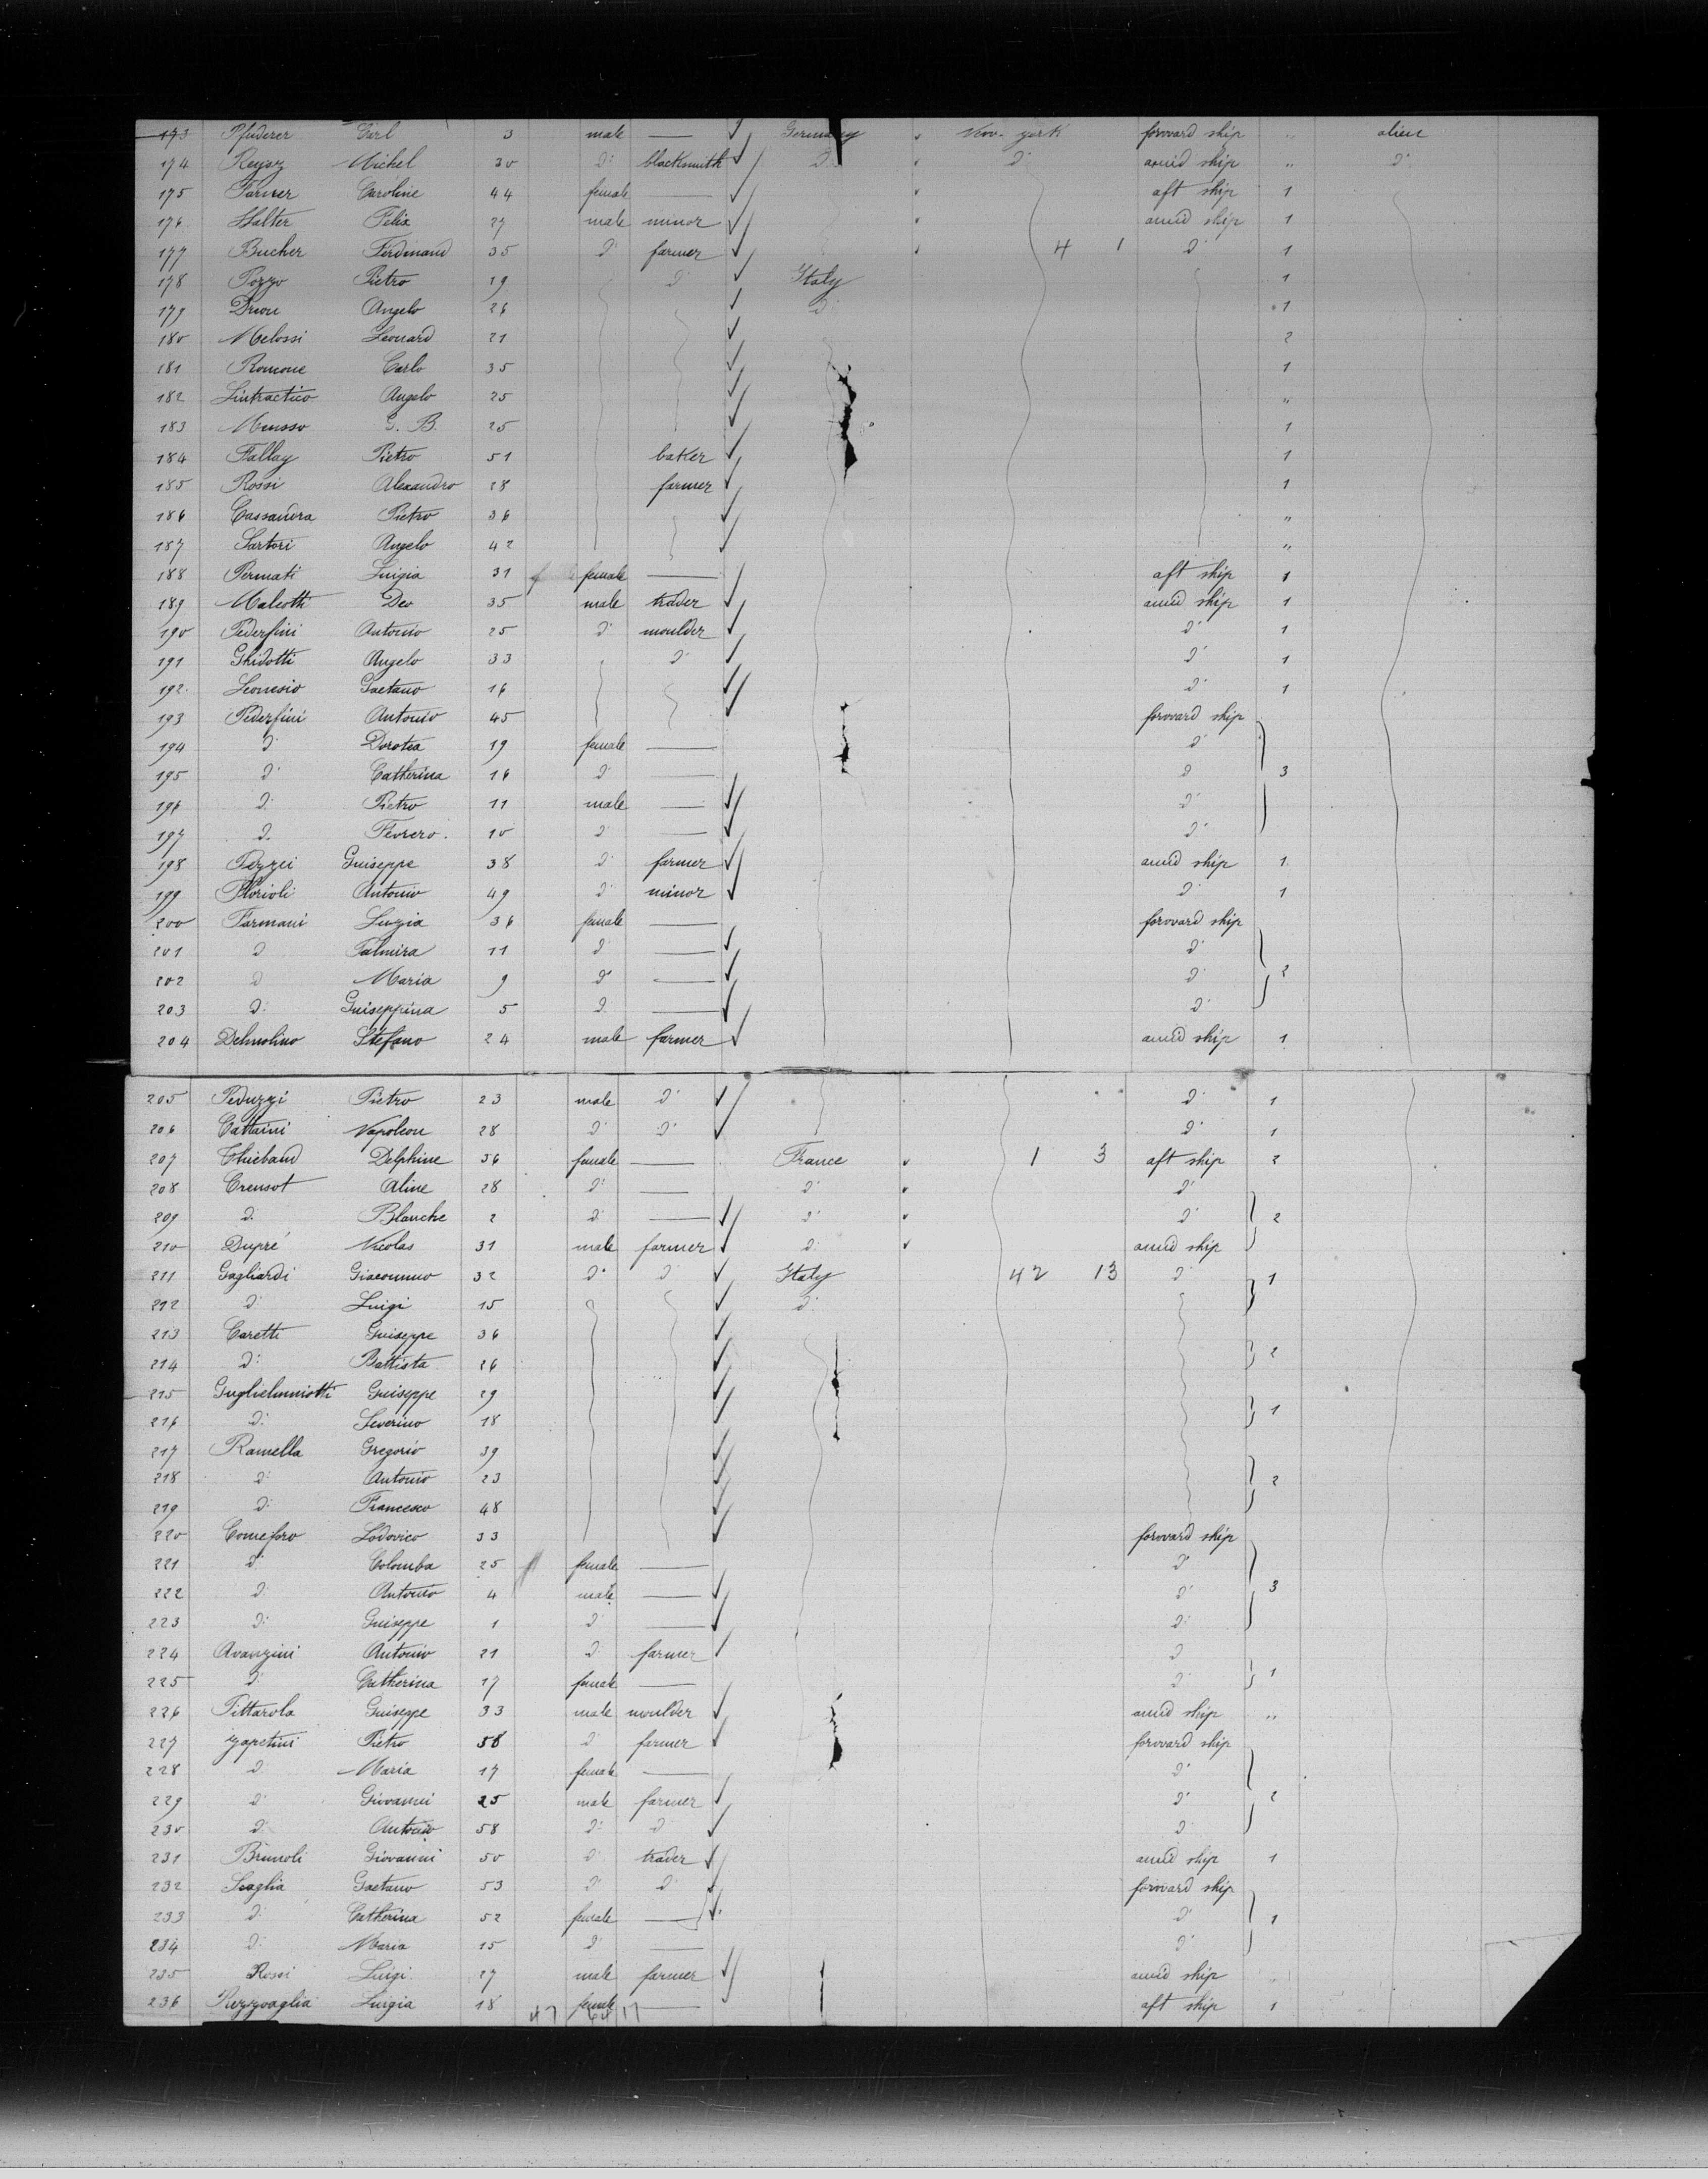 173 Pfuderer Carl 3 male — Germany New-york forward ship " alien
174 Michel 30 d: blacksmith d: d: amid ship " d:
175 Farner Caroline 44 female — aft ship 1
176 Halter Felix 27 male minor amid ship 1
177 Bucher Ferdinand 35 d: farmer 4 1 d: 1
178 Pozzo Pietro 19 d: Italy 1
179 Angelo 26 d: 1
180 Melossi Leonard 21 2
181 Romone Carlo 35 1
182 Angelo 25 "
183 Musso G. B. 25 1
184 Fallay Pietro 51 baker 1
185 Rossi Alexandro 28 farmer 1
186 Cassandra Pietro 36 "
187 Sartori Angelo 42 "
188 Permati Luigia 31 female — aft ship 1
189 Malcotti Deo 35 male trader amid ship 1
190 Pederfini Antonio 25 d: moulder d: 1
191 Ghidotti Angelo 33 d: d: 1
192 Leonesio Gaetano 16 d: 1
193 Pederfini Antonio 45 forward ship
194 d: Dorotea 19 female — d:
195 d: Catherina 16 d: — d: 3
196 d: Pietro 11 male — d:
197 d: 10 d: — d:
198 Pezzei Guiseppe 38 d: farmer amid ship 1
199 Florioli Antonio 49 d: minor d: 1
200 Farmani Luzia 36 female — forward ship
201 d: Palmira 11 d: — d:
202 d: Maria 9 d: — d: 2
203 d: Guiseppina 5 d: — d:
204 Delmolino Stefano 24 male farmer amid ship 1
205 Peduzzi Pietro 23 male d: d: 1
206 Cattaini Napoleon 28 d: d: d: 1
207 Thiebaud Delphine 56 female — France 1 3 aft ship 2
208 Creusot Aline 28 d: — d: d:
209 d: Blanche 2 d: — d: d: 2
210 Dupré Nicolas 31 male farmer d: amid ship
211 Gagliardi Giacommo 32 d: d: Italy 42 13 d: 1
212 d: Luigi 15 d:
213 Caretti Guiseppe 36
214 d: Battista 26 2
215 Guglielmniotti Guiseppe 29
216 d: Severino 18 1
217 Ramella Gregorio 39
218 d: Antonio 23 2
219 d: Francesco 48
220 Comeforo Lodovico 33 forward ship
221 d: Colomba 25 female — d:
222 d: Antonio 4 male — d: 3
223 d: Guiseppe 1 d: — d:
224 Avanzini Antonio 21 d: farmer d:
225 d: Catherina 17 female — d: 1
226 Pittarola Guiseppe 33 male moulder amid ship "
227 Zapetini Pietro 58 d: farmer forward ship
228 d: Maria 17 female — d:
229 d: Giovanni 25 male farmer d: 2
230 d: Antonio 58 d: d: d:
231 Brunoli Giovanni 50 d: trader amid ship 1
232 Scaglia Gaetano 53 d: d: forward ship
233 d: Catherina 52 female — d: 1
234 d: Maria 15 d: — d:
235 Rossi Luigi 27 male farmer amid ship
236 Rezzoaglia Luigia 18 female — aft ship 1
47 64 17